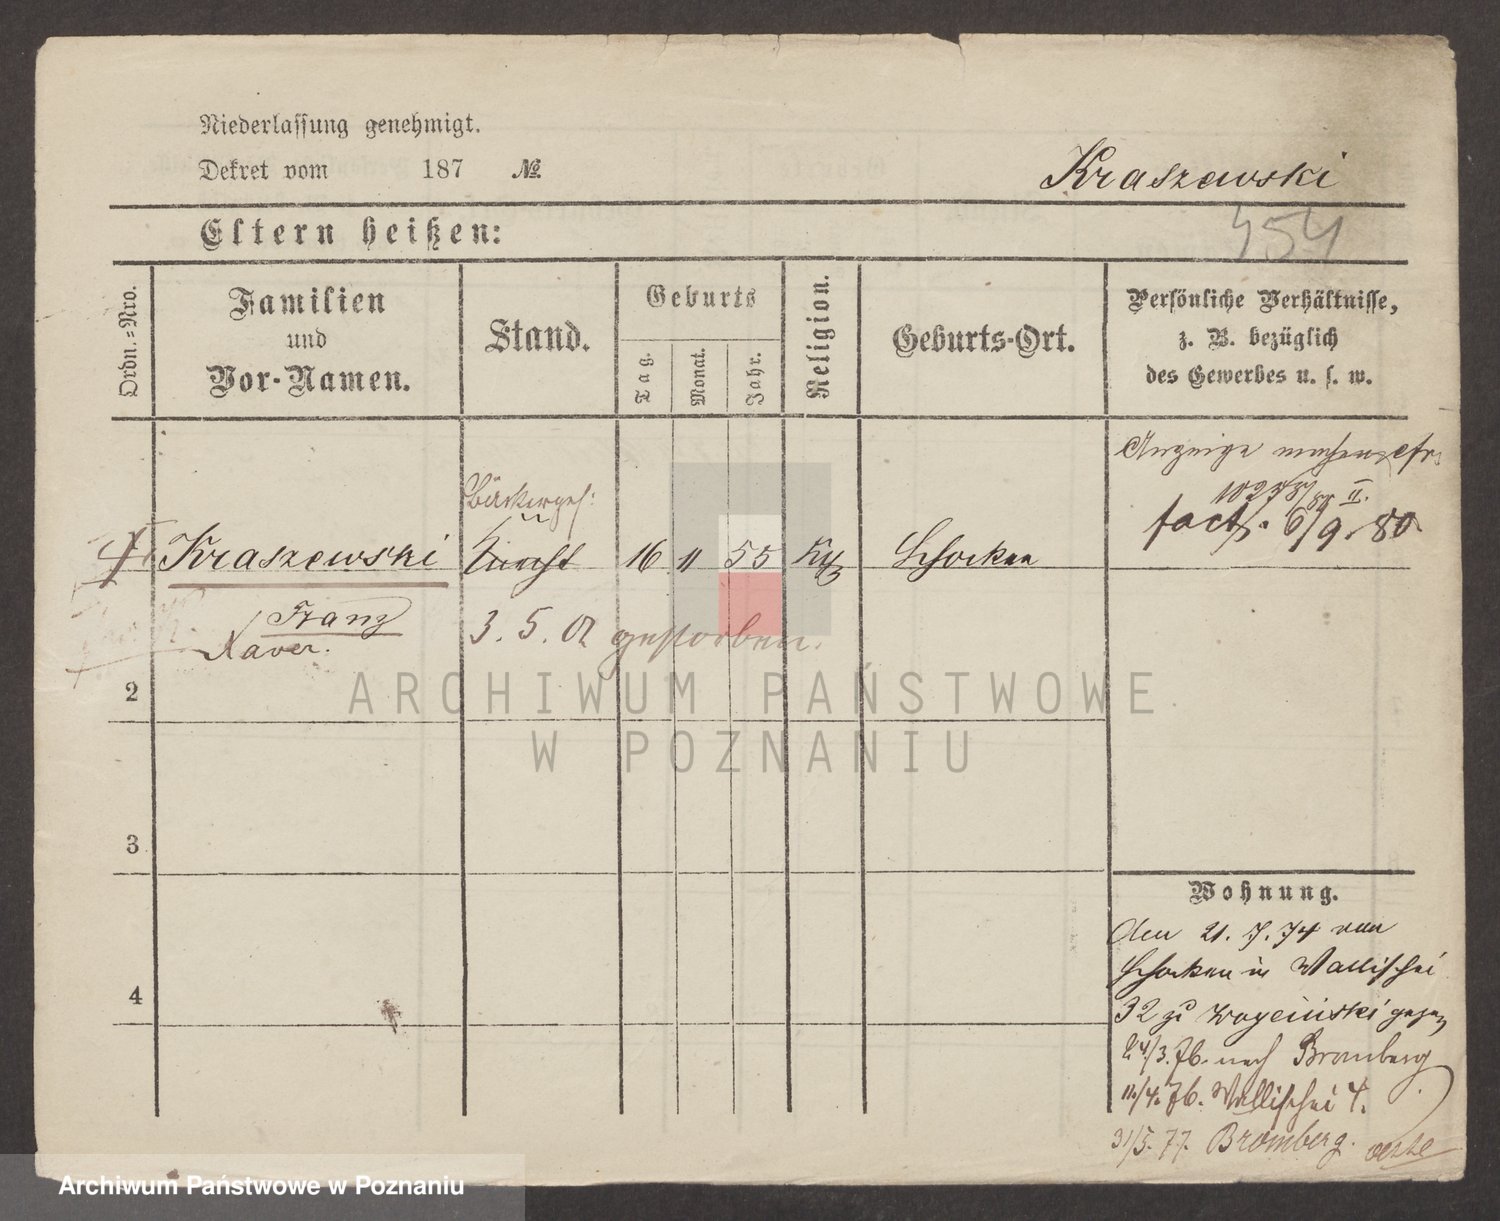 Niederlassung genehmigt.
Dekret vom 187 №
Kraszewski
Eltern heißen:
454
Ordn.=Nro.
Familien
und
Vor-Namen.
Stand.
Geburts
Tag.
Monat.
Jahr.
Religion.
Geburts-Ort.
Persönliche Verhältnisse,
z. B. bezüglich
des Gewerbes u. s. w.
Anzeige machen cfr.
fact. 6/9. 80.
Bäckerges:
Kraszewski 16 11 55 Kth Schocken
Franz
Xaver.
3. 5. 02 gestorben.
2
3
4
Wohnung.
den 21. 7. 74 von
Schocken in Wallischei
32 zu gezog
24/3. 76. nach Bromberg
11/4. 76. Wallischei 4.
31/5. 77. Bromberg.
ARCHIWUM PAŃSTWOWE
W POZNANIU
Archiwum Państwowe w Poznaniu